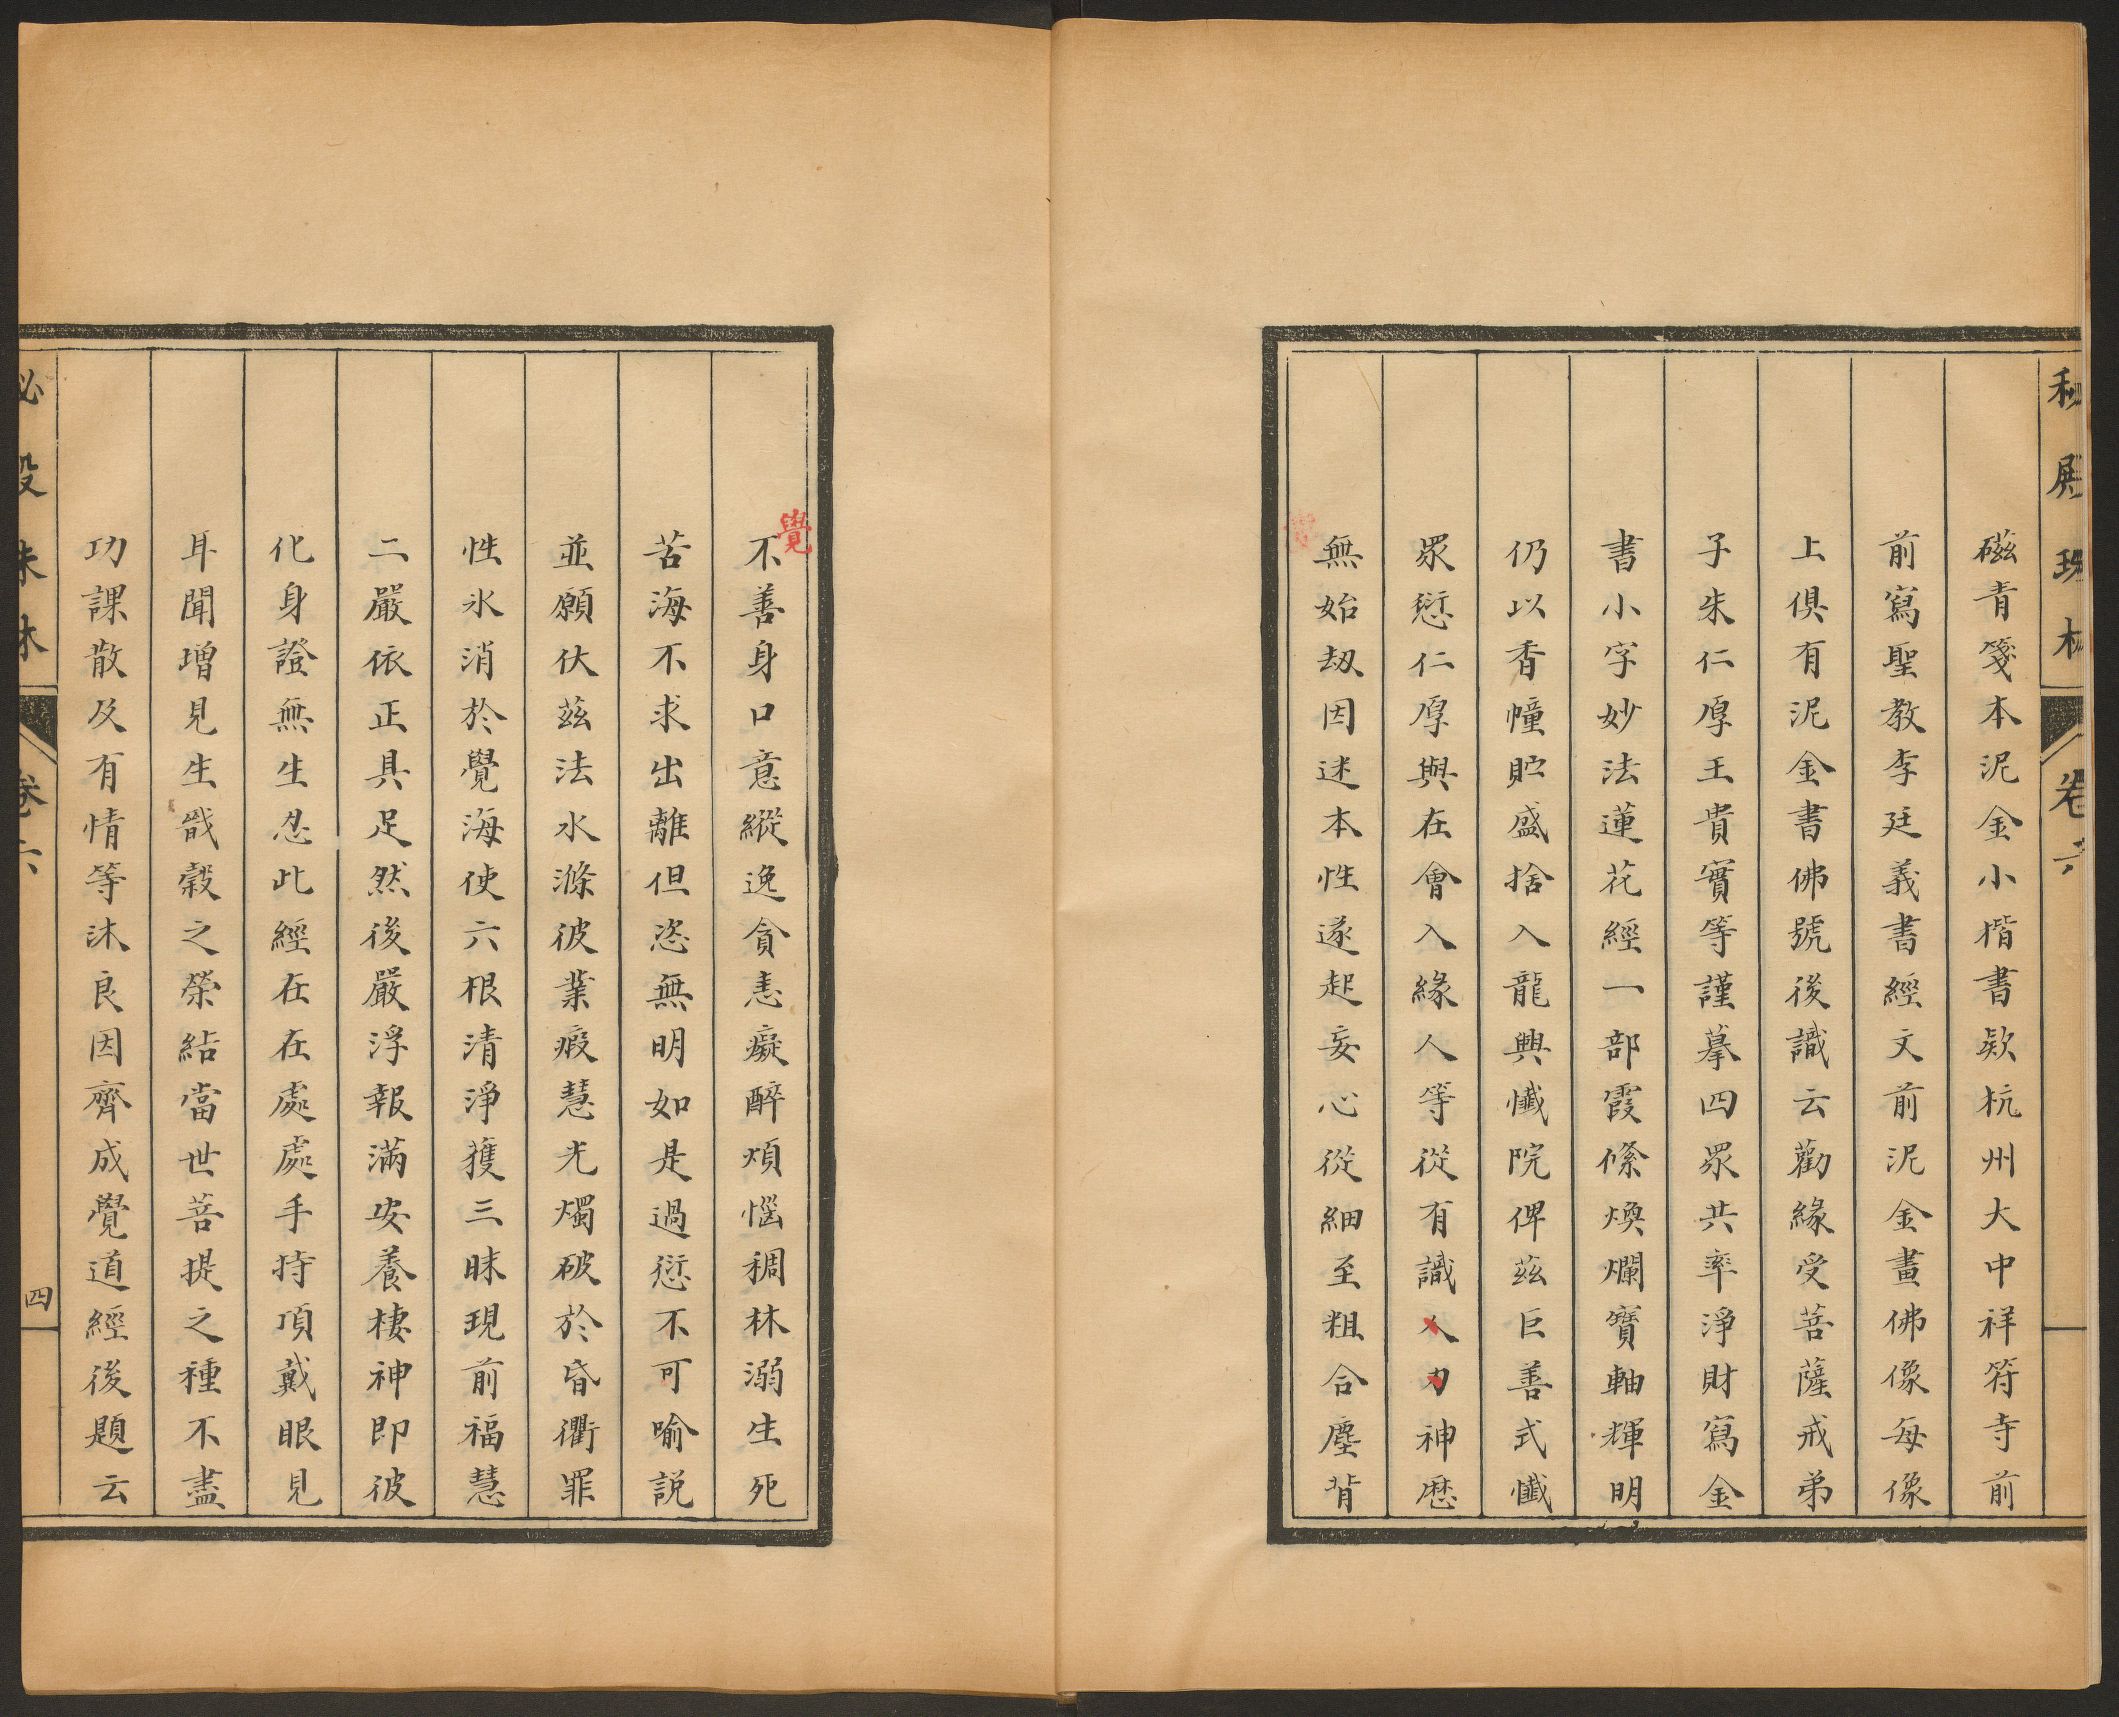 秘殿珠林
卷六
磁青箋本泥金小楷書欵杭州大中祥符寺前
前寫聖教李廷義書經文前泥金畫佛像每像
上俱有泥金書佛號後識云勸緣受菩薩戒弟
子朱仁厚王貴實等謹募四眾共率淨財寫金
書小字妙法蓮花經一部霞絛煥爛寶軸輝明
仍以香幢貯盛捨入龍興懺院俾茲巨善式懺
眾愆仁厚與在會入緣人等從有識人力神歷
無始劫因迷本性遂起妄心從細至粗合塵背
覺
不善身口意縱逸貪恚癡醉煩惱稠林溺生死
苦海不求出離但恣無明如是過愆不可喻説
並願伏茲法水滌彼業瘕慧光燭破於昏衢罪
性氷消於覺海使六根清淨獲三昧現前福慧
二嚴依正具足然後嚴浮報滿安養棲神即彼
化身證無生忍此經在在處處手持項戴眼見
耳聞增見生戩穀之榮結當世菩提之種不盡
功課散及有情等沐良因齊成覺道經後題云
秘殿珠林
卷六
四